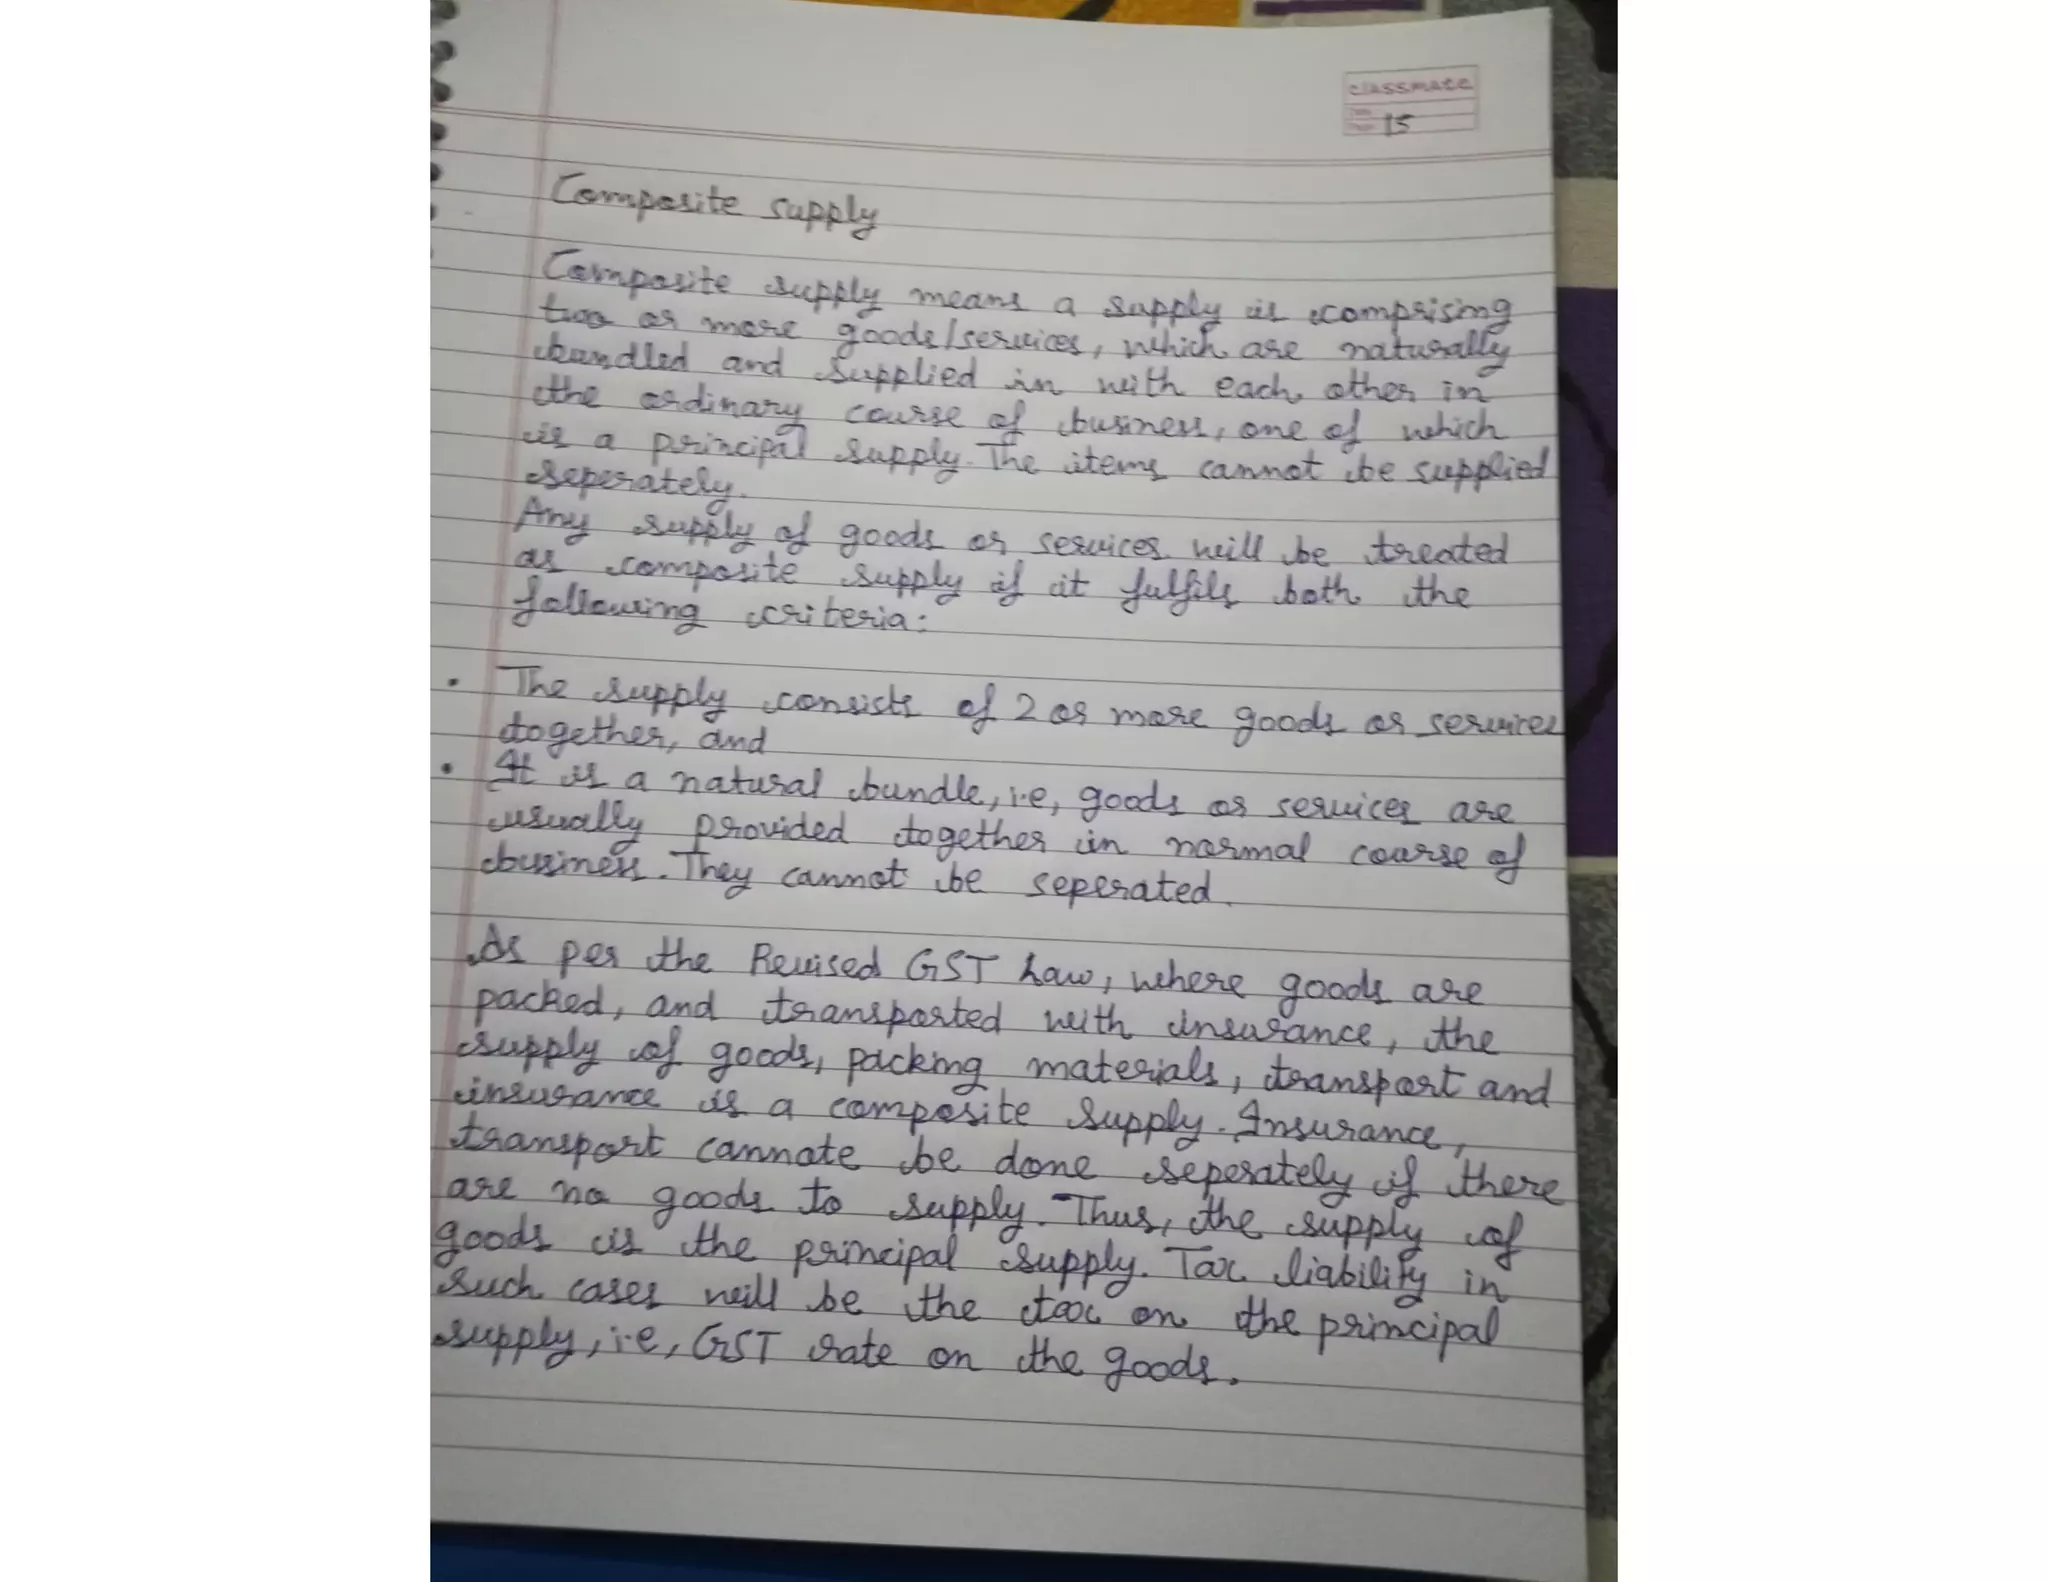 classmate
Date
Page 15
Composite supply
Composite supply means a supply is comprising
two or more goods/services, which are naturally
bundled and supplied in with each other in
the ordinary course of business, one of which
is a principal supply. The items cannot be supplied
seperately.
Any supply of goods or services will be treated
as composite supply if it fulfils both the
following criteria:
• The supply consists of 2 or more goods or services
together, and
• It is a natural bundle, i.e, goods or services are
usually provided together in normal course of
business. They cannot be seperated.
As per the Revised GST Law, where goods are
packed, and transported with insurance, the
supply of goods, packing materials, transport and
insurance is a composite supply. Insurance,
transport cannote be done seperately if there
are no goods to supply. Thus, the supply of
goods is the principal supply. Tax liability in
such cases will be the tax on the principal
supply, i.e, GST rate on the goods.